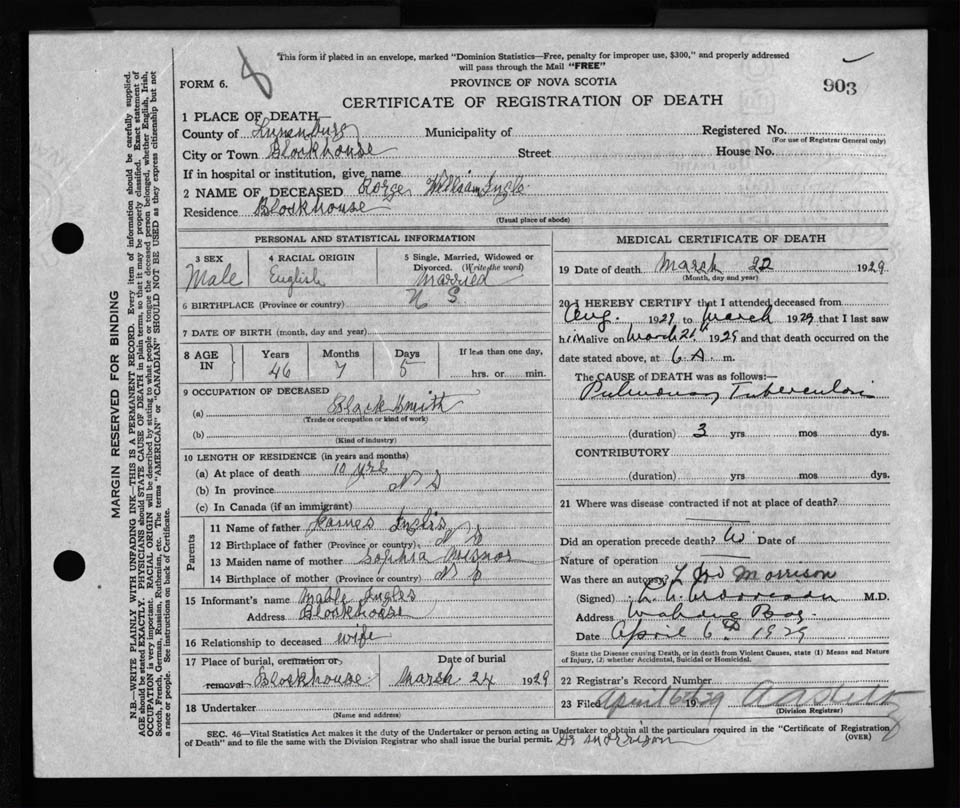 This form if placed in an envelope, marked "Dominion Statistics—Free, penalty for improper use, $300," and properly addressed
will pass through the Mail "FREE"
FORM 6.
PROVINCE OF NOVA SCOTIA
903
CERTIFICATE OF REGISTRATION OF DEATH
1 PLACE OF DEATH—
County of Lunenburg Municipality of Registered No.
(For use of Registrar General only)
City or Town Blockhouse Street House No.
If in hospital or institution, give name
2 NAME OF DECEASED William Ingle
Residence Blockhouse
(Usual place of abode)
PERSONAL AND STATISTICAL INFORMATION
3 SEX 4 RACIAL ORIGIN 5 Single, Married, Widowed or
Divorced. (Write the word)
Male English Married
6 BIRTHPLACE (Province or country) N S
7 DATE OF BIRTH (month, day and year)
8 AGE IN Years Months Days If less than one day,
46 7 5 hrs. or min.
9 OCCUPATION OF DECEASED
(a) Black Smith
(Trade or occupation or kind of work)
(b)
(Kind of industry)
10 LENGTH OF RESIDENCE (in years and months)
(a) At place of death 10 yrs
(b) In province N S
(c) In Canada (if an immigrant)
Parents
11 Name of father James Inglis
12 Birthplace of father (Province or country) N S
13 Maiden name of mother Sophia
14 Birthplace of mother (Province or country) N S
15 Informant's name Mable Ingles
Address Blockhouse
16 Relationship to deceased wife
17 Place of burial, cremation or Date of burial
removal Blockhouse March 24 1929
18 Undertaker
(Name and address)
MEDICAL CERTIFICATE OF DEATH
19 Date of death March 22 1929
(Month, day and year)
20 I HEREBY CERTIFY that I attended deceased from
Aug. 1927 to March 1929 that I last saw
him alive on March 21st 1929 and that death occurred on the
date stated above, at 6 A. m.
The CAUSE OF DEATH was as follows:—
Pulmonary Tuberculosis
(duration) 3 yrs mos dys.
CONTRIBUTORY
(duration) yrs mos dys.
21 Where was disease contracted if not at place of death?
Did an operation precede death? Date of
Nature of operation
Was there an autopsy? Morrison
(Signed) M.D.
Address Mahone Bay
Date April 6th 1929
State the Disease causing Death, or in death from Violent Causes, state (1) Means and Nature
of Injury, (2) whether Accidental, Suicidal or Homicidal.
22 Registrar's Record Number
23 Filed April 6th 1929
(Division Registrar)
SEC. 46—Vital Statistics Act makes it the duty of the Undertaker or person acting as Undertaker to obtain all the particulars required in the "Certificate of Registration
of Death" and to file the same with the Division Registrar who shall issue the burial permit. Dr Morrison (OVER)
MARGIN RESERVED FOR BINDING
N.B.—WRITE PLAINLY WITH UNFADING INK—THIS IS A PERMANENT RECORD. Every item of information should be carefully supplied.
AGE should be stated EXACTLY. PHYSICIANS should STATE CAUSE OF DEATH in plain terms, so that it may be properly classified. Exact statement of
OCCUPATION is very important. RACIAL ORIGIN will be described by stating to what people or tongue the deceased person belonged, whether English, Irish,
Scotch, French, German, Russian, Ruthenian, etc. The terms "AMERICAN" or "CANADIAN" SHOULD NOT BE USED as they express citizenship but not
a race or people. See instructions on back of Certificate.